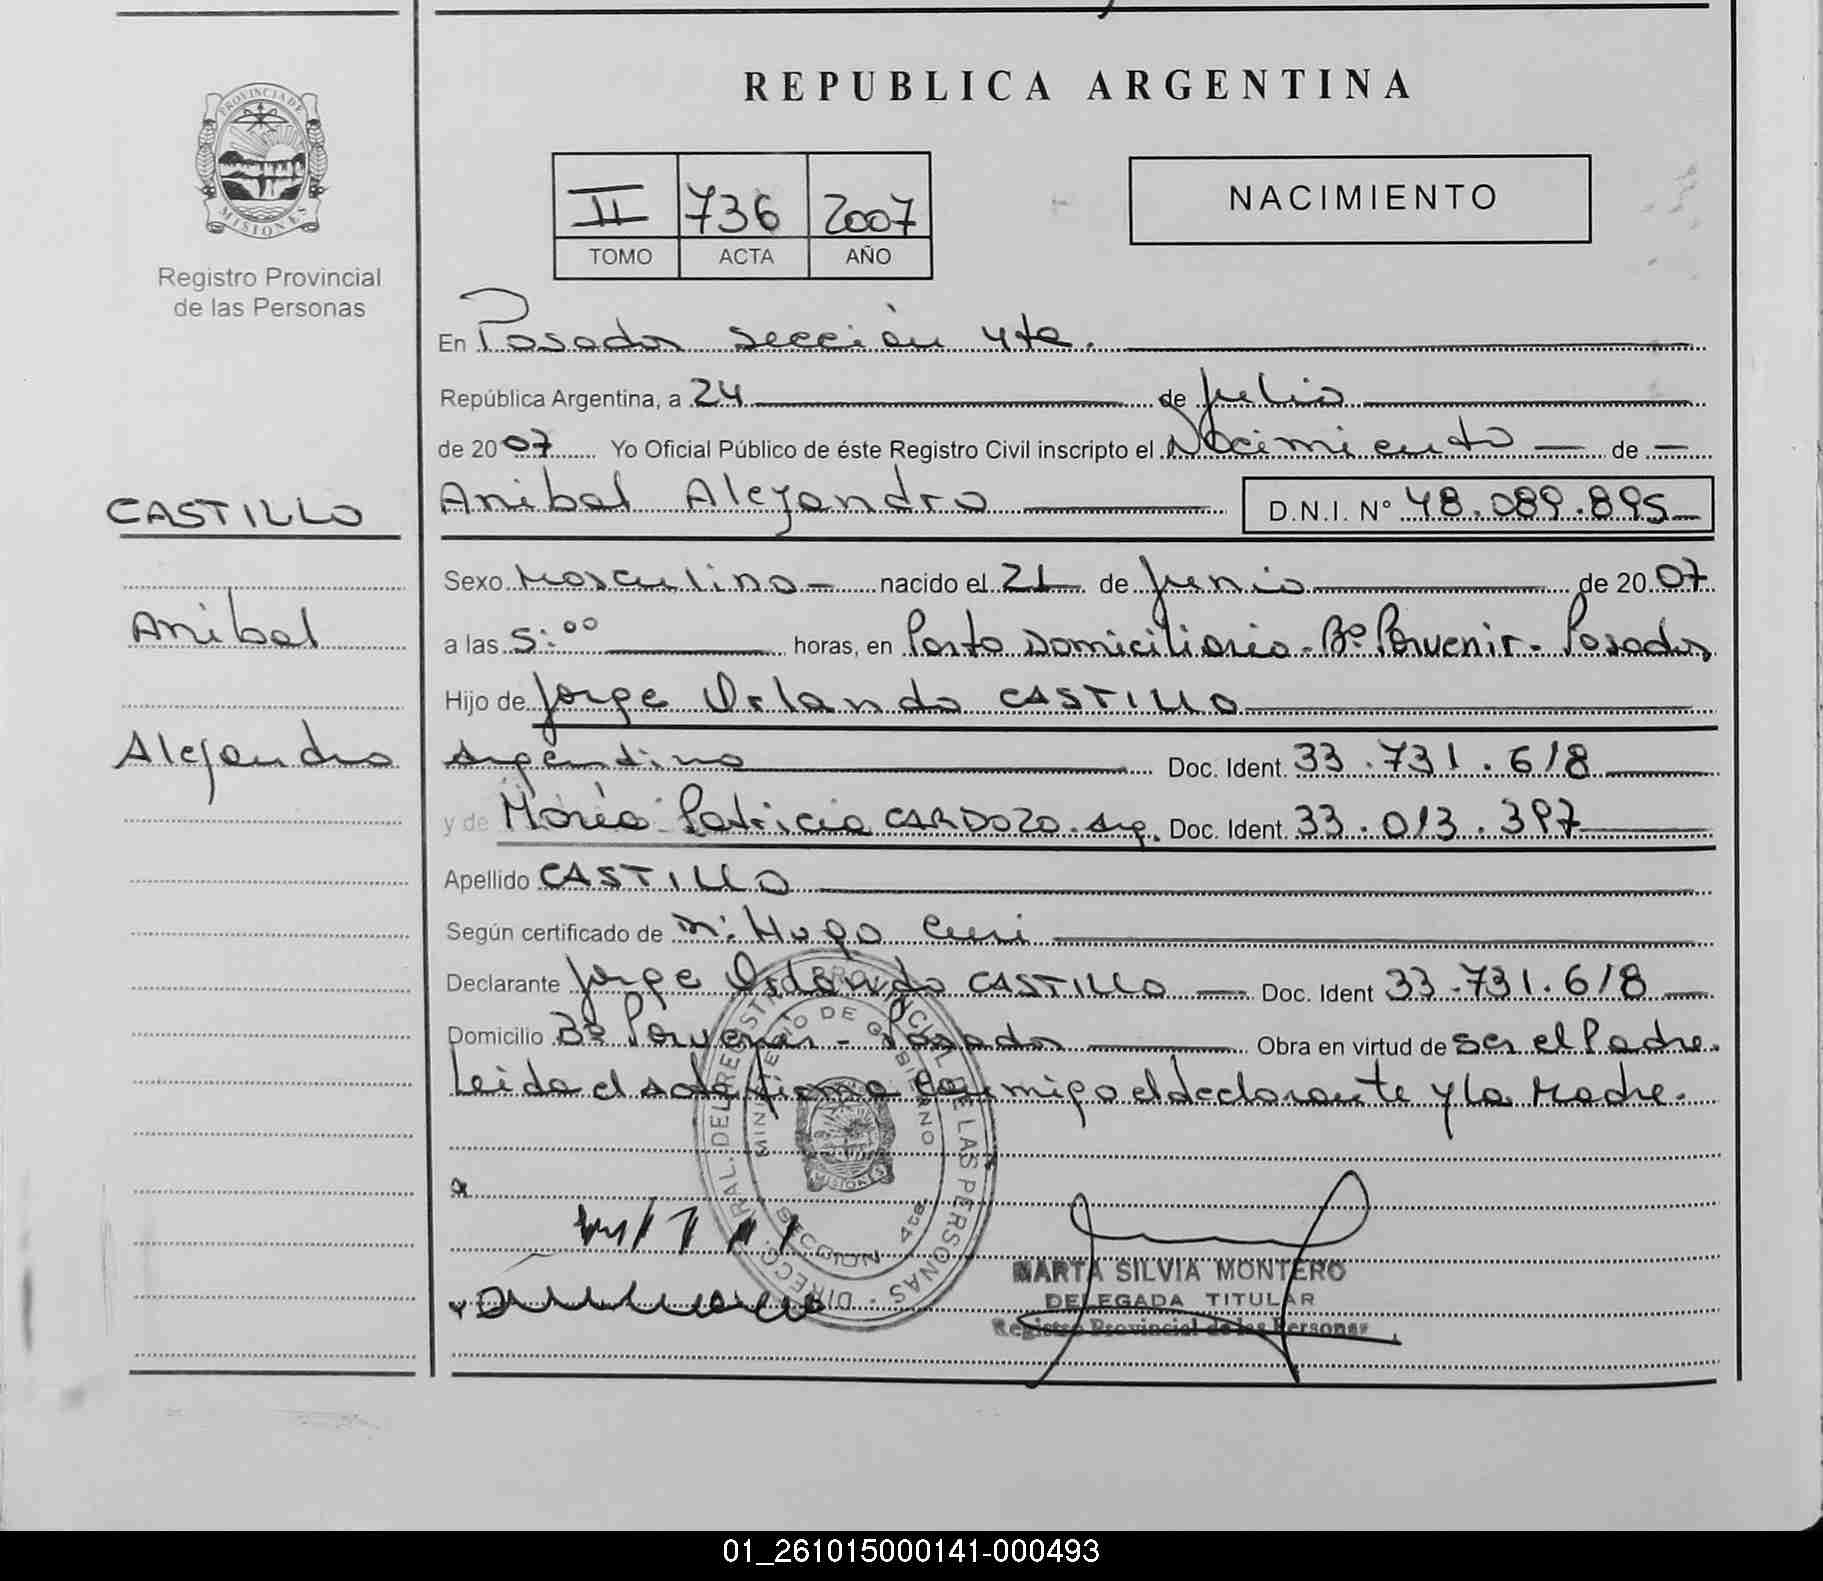 REPUBLICA ARGENTINA
PROVINCIA DE MISIONES
Registro Provincial
de las Personas
II 736 2007
TOMO ACTA AÑO
NACIMIENTO
En Posadas sección 4ta.
República Argentina, a 24 de Julio
de 2007 Yo Oficial Público de éste Registro Civil inscripto el Nacimiento de
CASTILLO
Anibal Alejandro D.N.I. N° 48.089.895
Sexo Masculino nacido el 21 de Junio de 2007
Anibal
a las 5:00 horas, en Parto Domiciliario - Bº Porvenir - Posadas
Hijo de Jorge Orlando CASTILLO
Alejandro
Argentino Doc. Ident. 33.731.618
y de María Patricia CARDOZO. Arg. Doc. Ident. 33.013.397
Apellido CASTILLO
Según certificado de Hugo
Declarante Jorge Orlando CASTILLO Doc. Ident 33.731.618
Domicilio Bº Porvenir - Posadas Obra en virtud de ser el Padre.
Leida el acta firma conmigo el declarante y la Madre.
DIRECC. GRAL. DEL REGISTRO PROVINCIAL DE LAS PERSONAS
MINISTERIO DE GOBIERNO
MISIONES
SECCION 4ta.
MARTA SILVIA MONTERO
DELEGADA TITULAR
Registro Provincial de las Personas
01_261015000141-000493